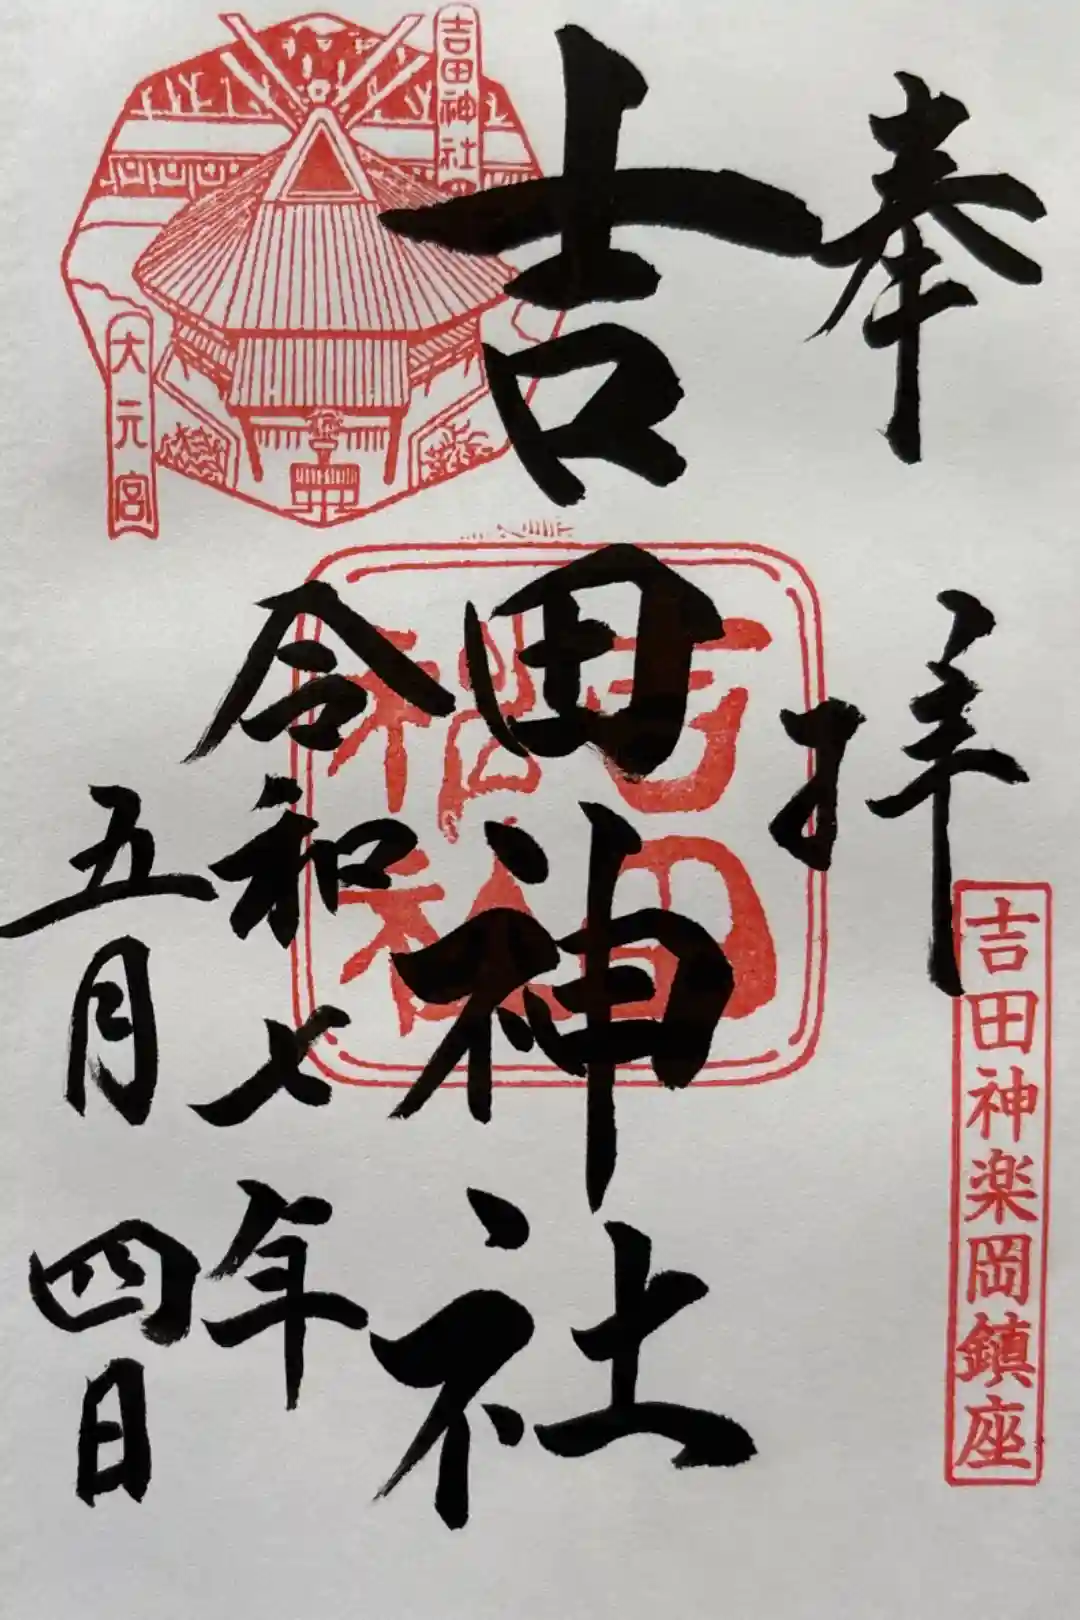 奉拝
吉田神楽岡鎮座
吉田神社
吉田神社
令和七年
五月四日
吉田神社
大元宮